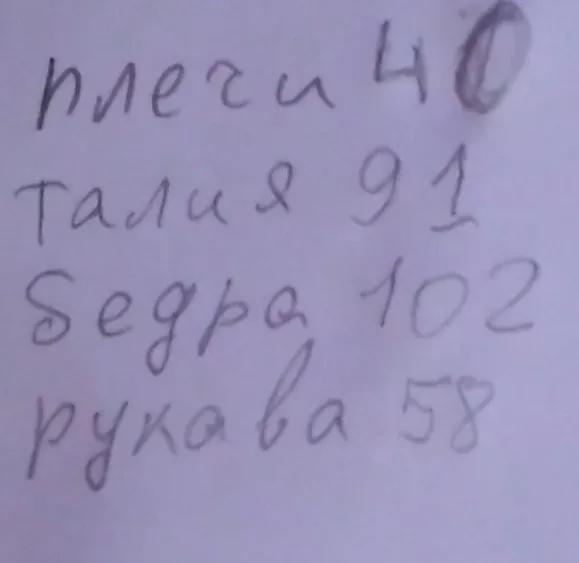 плечи 40
талия 91
бедра 102
рукава 58